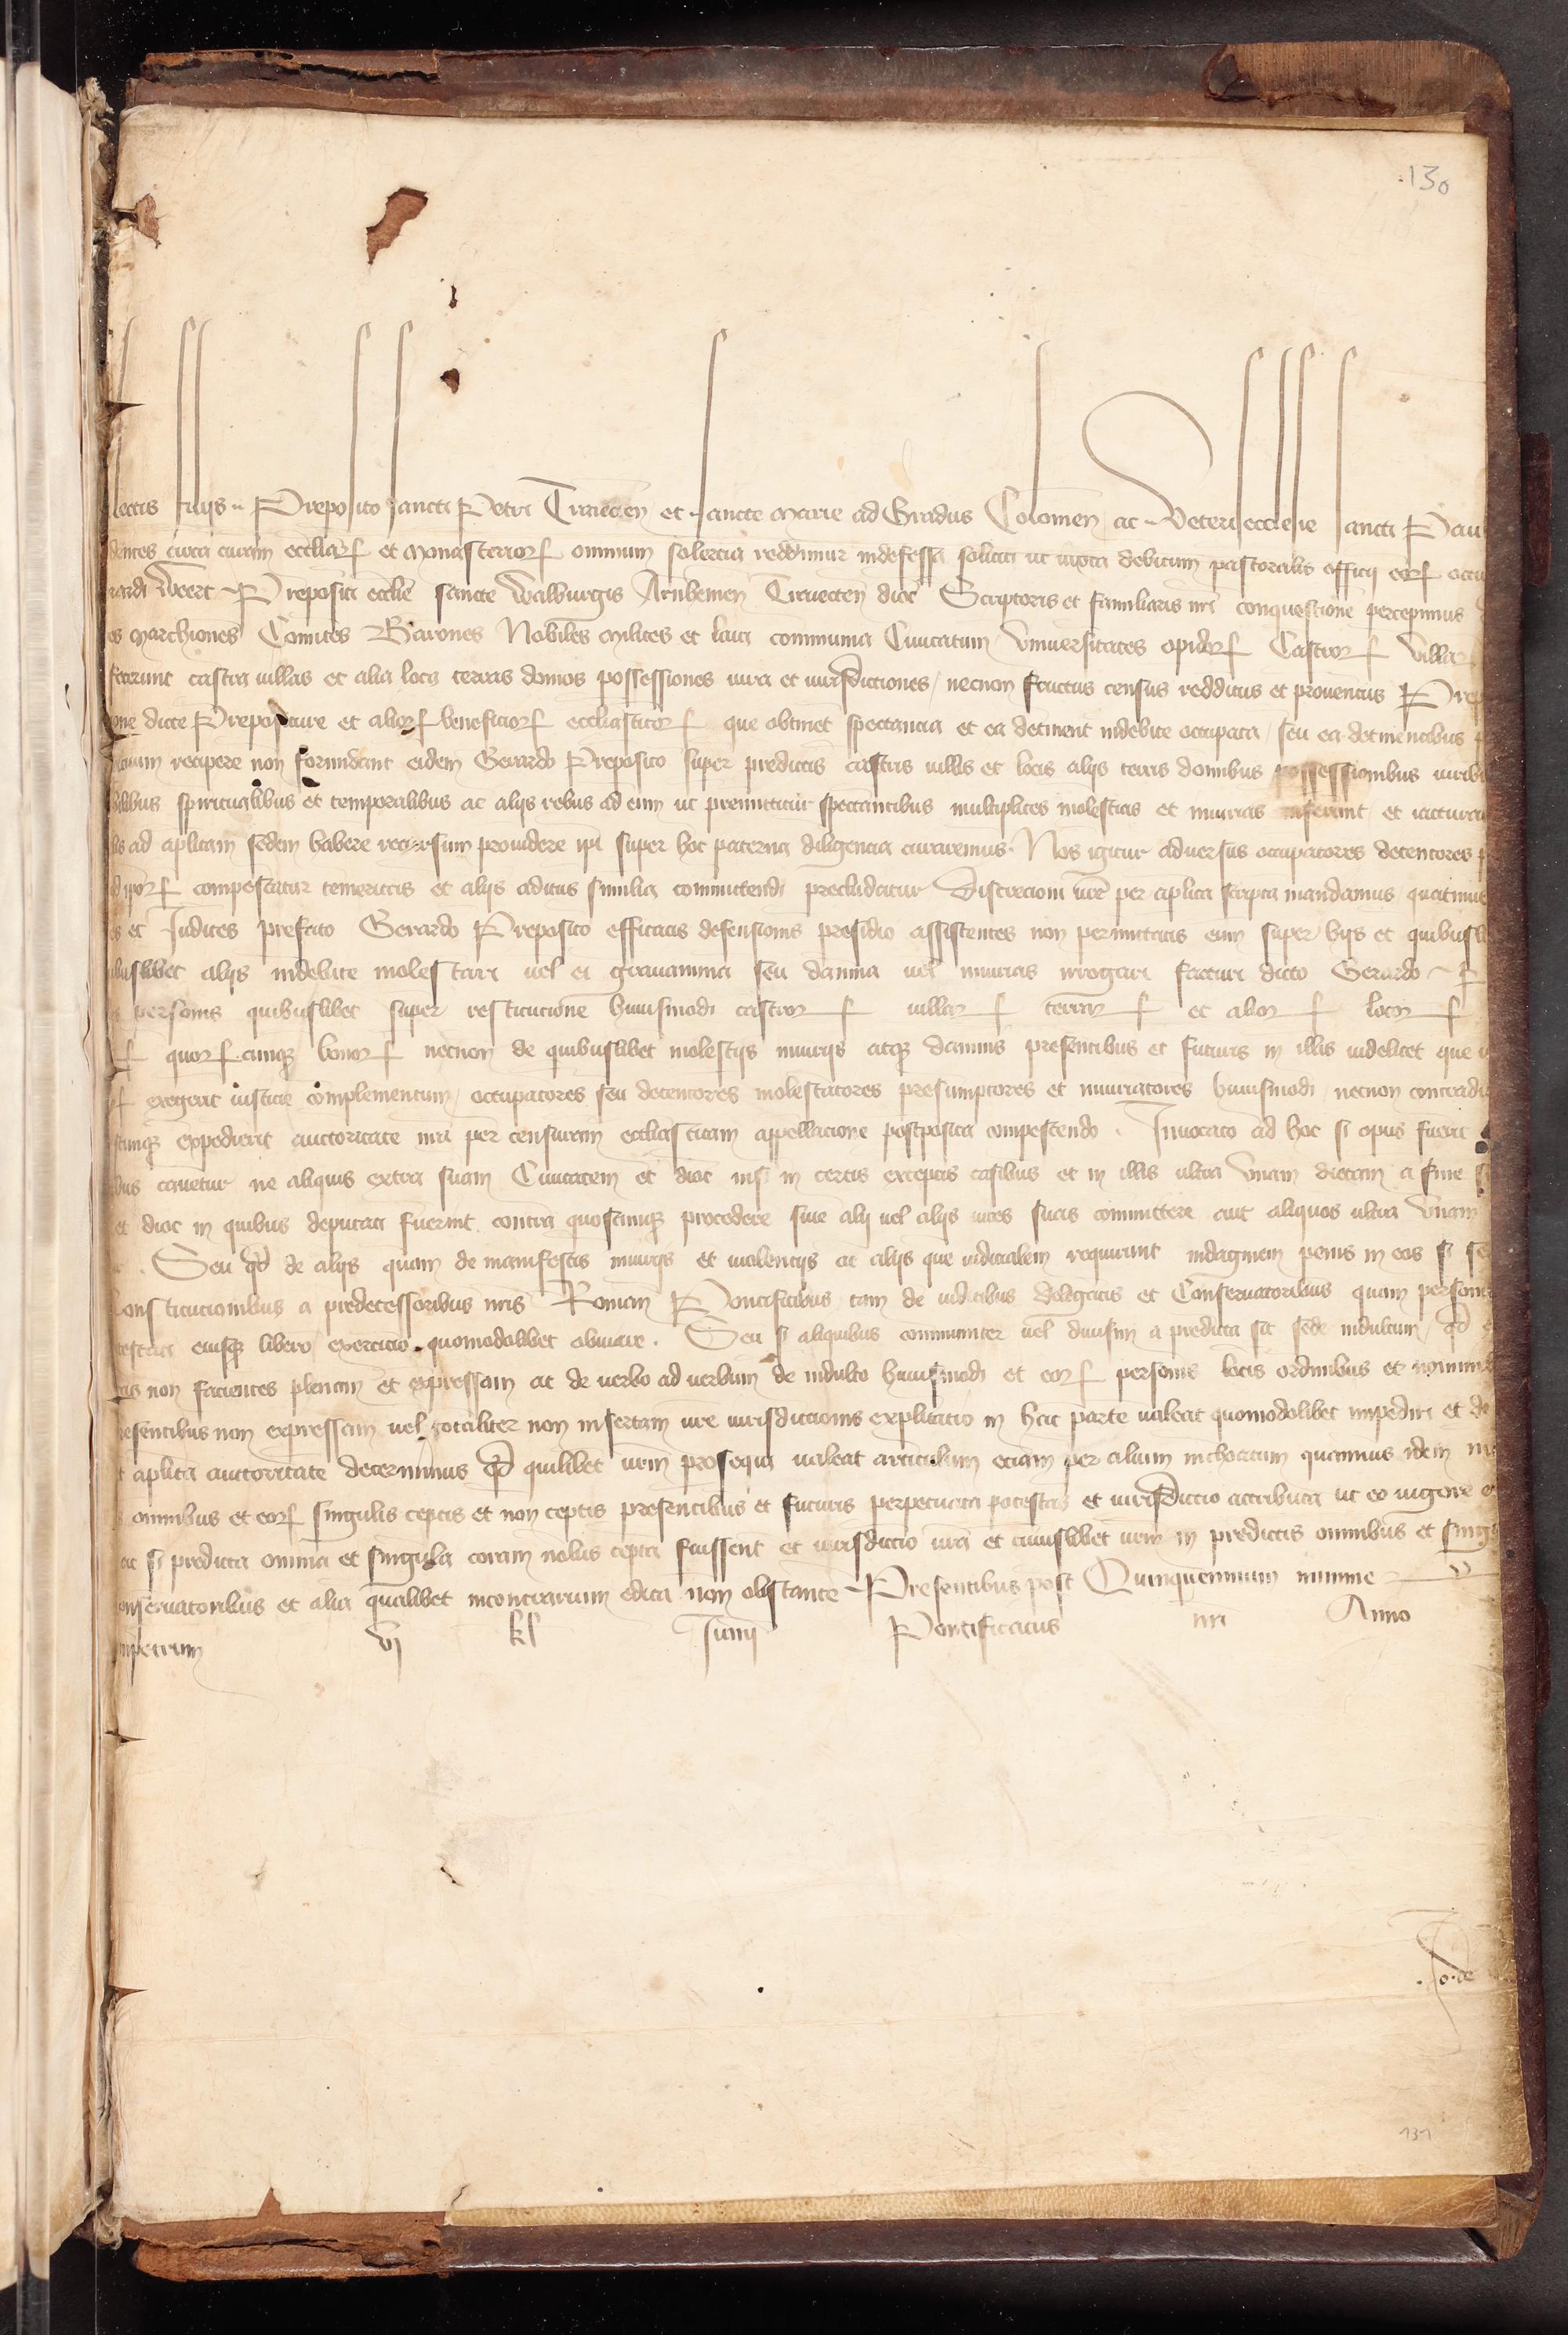 130
lectis filijs Preposito sancti Petri Traiecten et sancte Marie ad Gradus Colonien ac Veteri ecclesie sancti Pau
dentes circa curam eccliarum et Monasteriorum omnium solercia reddimur indefessa soliciti ut iuxta debitum pastoralis officij eorum occu
rardi Weert Prepositi ecclie sancte Walburgis Arnhemen Traiecten dioc Scriptoris et familiaris nri conquestione percepimus
es Marchiones Comites Barones Nobiles milites et laici communia Ciuitatum Vniuersitates opidorum Castrorum Villar
fecerunt castra villas et alia loca terras domos possessiones iura et iurisdictiones necnon fructus census redditus et prouentus Prep
one dicte Prepositure et aliorum beneficiorum eccliasticorum que obtinet spectancia et ea detinent indebite occupata seu ea detinentibus
recipere non formidant eidem Gerardo Preposito super predictis castris villis et locis alijs terris domibus possessionibus iurib
ilibus spiritualibus et temporalibus ac alijs rebus ad eum ut premittitur spectantibus multiplices molestias et iniurias inferunt et iacturas
ad aplicam sedem habere recursum prouidere ipi super hoc paterna diligencia curaremus Nos igitur aduersus occupatores detentores
compescatur temeritas et alijs aditus similia committendi precludatur Discrecioni vre per aplica scripta mandamus quatinus
et Iudices prefato Gerardo Preposito efficacis defensionis presidio assistentes non permittatis eum super hijs et quibusl
ibuslibet alijs indebite molestari vel ei grauamina seu damna vel iniurias irrogari facturi dicto Gerardo P
personis quibuslibet super restitucione huiusmodi castrorum villarum terrarum et aliorum locorum
quorumcunque bonorum necnon de quibuslibet molestijs iniurijs atque damnis presentibus et futuris in illis videlicet que
exegerit iusticie complementum occupatores seu detentores molestatores presumptores et iniuriatores huiusmodi necnon contradi
cunque expedierit auctoritate nra per censuram eccliasticam appellacione postposita compescendo Inuocato ad hoc si opus fuerit
bus cauetur ne aliquis extra suam Ciuitatem et dioc nisi in certis exceptis casibus et in illis ultra vnam dietam a fine
et dioc in quibus deputati fuerint contra quoscunque procedere siue alij vel alijs vices suas committere aut aliquos ultra vnam
Seu qd de alijs quam de manifestis iniurijs et violencijs ac alijs que iudicialem requirunt indaginem penis in eos si se
Constitucionibus a predecessoribus nris Romanis Pontificibus tam de iudicibus delegatis et Conseruatoribus quam person
testati eiusque libero exercicio quomodolibet obuiare Seu si aliquibus communiter vel diuisim a predicta sit sede indultum qd
ras non facientes plenam et expressam ac de verbo ad verbum de indulto huiusmodi et eorum personis locis ordinibus et nominib
resentibus non expressam vel totaliter non insertam vre iurisdictionis explicatio in hac parte valeat quomodolibet impediri et de
aplica auctoritate decernimus qd quilibet vrm prosequi valeat articulum eciam per alium inchoatum quamuis idem in
omnibus et eorum singulis ceptis et non ceptis presentibus et futuris perpetuata potestas et iurisdictio attributa ut eo vigore
ac si predicta omnia et singula coram vobis cepta fuissent et iurisdictio vra et cuiuslibet vrm in predictis omnibus et sing
onseruatoribus et alia qualibet incontrarium edita non obstante Presentibus post Quinquennium minime
mpetrum vj kl Iunij Pontificatus nri Anno
Jo. de
131